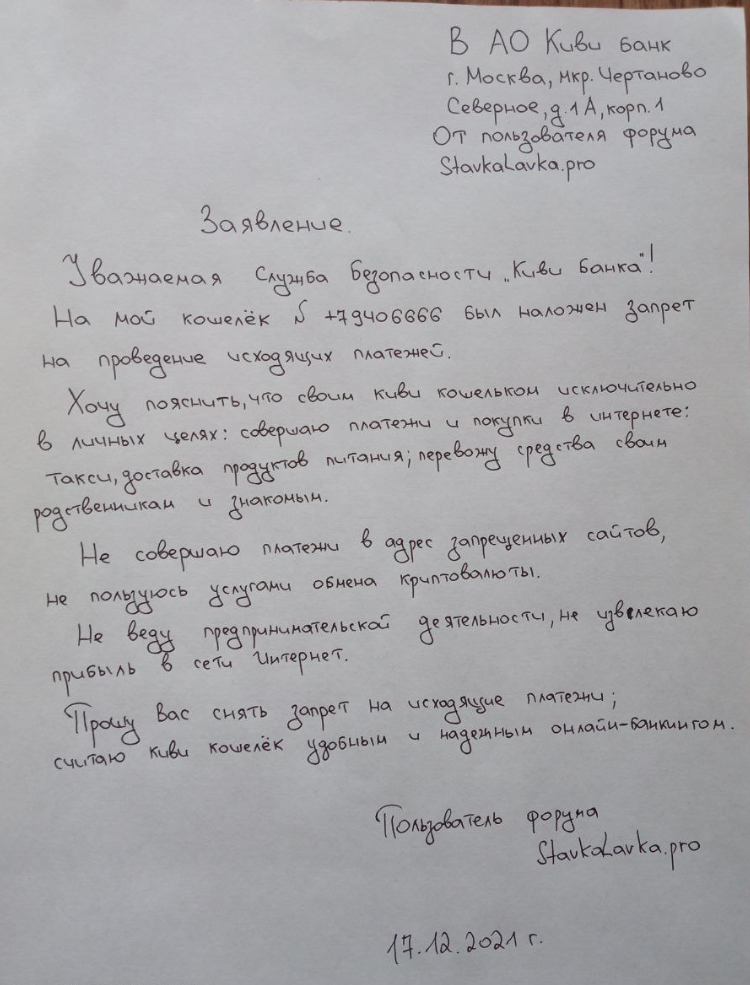 В АО Киви банк
г. Москва, мкр. Чертаново
Северное, д.1А, корп.1
От пользователя форума
StavkaLavka.pro
Заявление.
Уважаемая Служба Безопасности „Киви Банка"!
На мой кошелёк № +79406666 был наложен запрет
на проведение исходящих платежей.
Хочу пояснить, что своим киви кошельком исключительно
в личных целях: совершаю платежи и покупки в интернете:
такси, доставка продуктов питания; перевожу средства своим
родственникам и знакомым.
Не совершаю платежи в адрес запрещенных сайтов,
не пользуюсь услугами обмена криптовалюты.
Не веду предпринимательской деятельности, не извлекаю
прибыль в сети Интернет.
Прошу Вас снять запрет на исходящие платежи;
считаю киви кошелёк удобным и надежным онлайн-банкингом.
Пользователь форума
StavkaLavka.pro
17.12.2021 г.